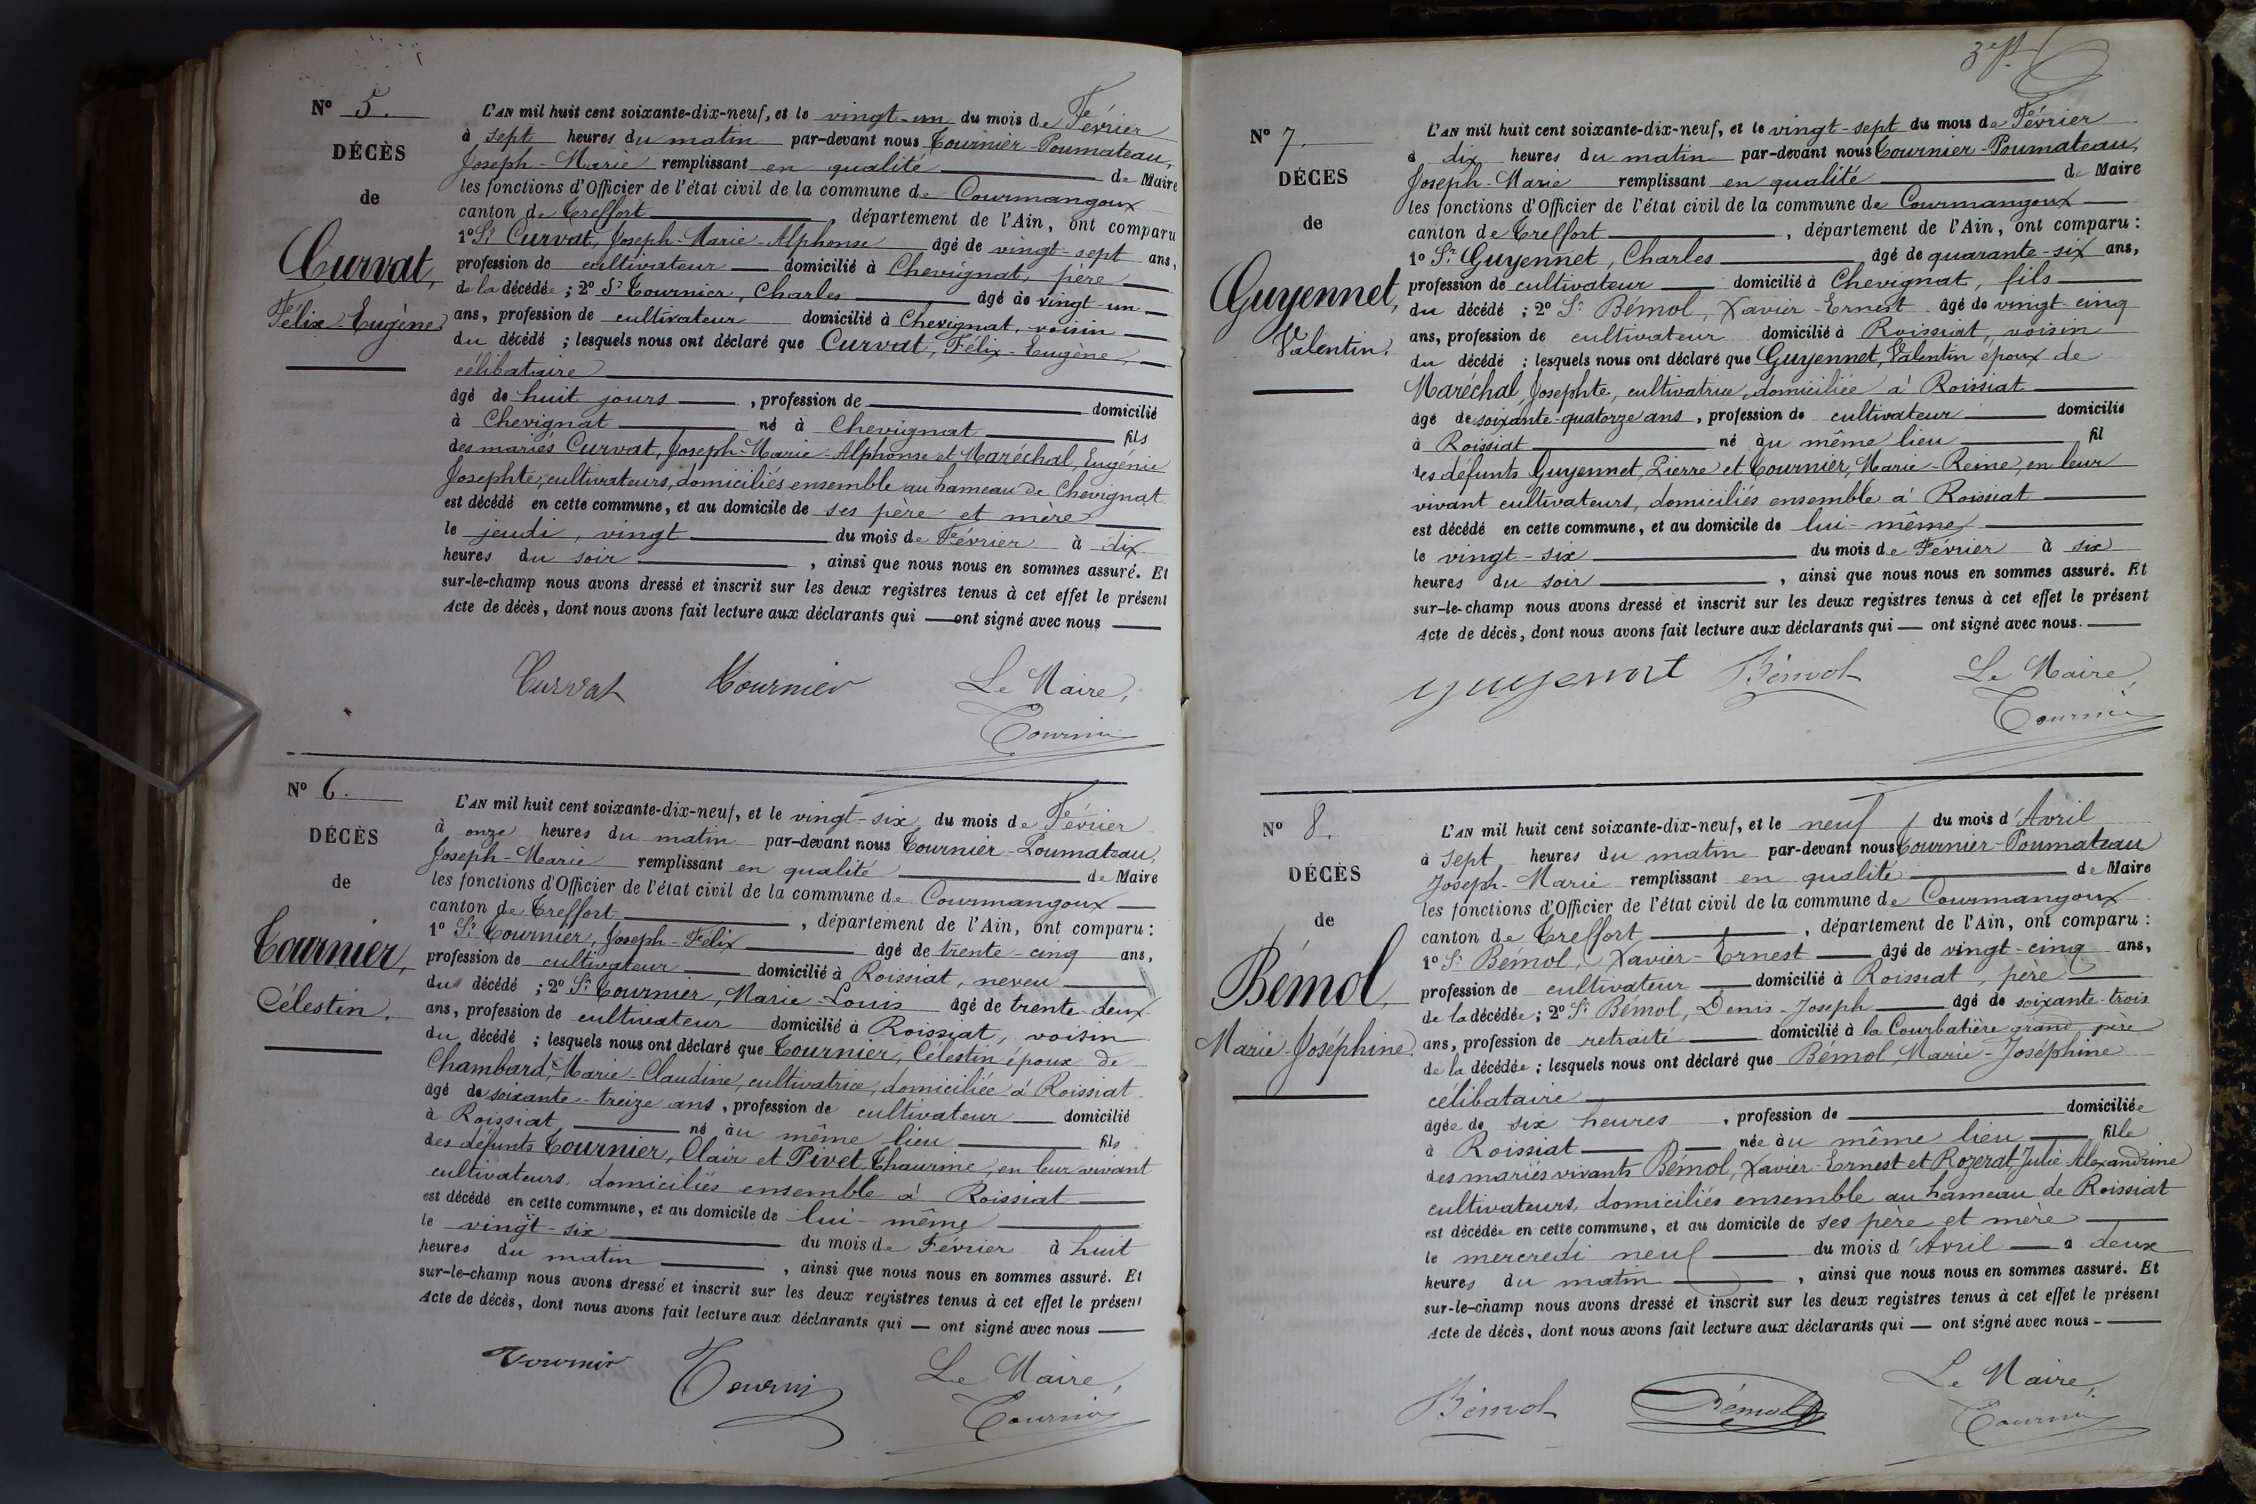 N° 5.
DÉCÈS
de
Curvat,
Félix-Eugène.
L'AN mil huit cent soixante-dix-neuf, et le vingt-un du mois de Février
à sept heures du matin par-devant nous Tournier-Poumateau,
Joseph-Marie remplissant en qualité de Maire
les fonctions d'Officier de l'état civil de la commune de Courmangoux
canton de Treffort, département de l'Ain, ont comparu
1° Sr Curvat, Joseph-Marie-Alphonse âgé de vingt-sept ans,
profession de cultivateur domicilié à Chevignat, père
de la décédée ; 2° Sr Tournier, Charles âgé de vingt-un
ans, profession de cultivateur domicilié à Chevignat, voisin
du décédé ; lesquels nous ont déclaré que Curvat, Félix-Eugène,
célibataire
âgé de huit jours, profession de domicilié
à Chevignat né à Chevignat fils
des mariés Curvat, Joseph-Marie-Alphonse et Maréchal, Eugénie
Josephte, cultivateurs, domiciliés ensemble au hameau de Chevignat
est décédé en cette commune, et au domicile de ses père et mère
le jeudi, vingt du mois de Février à dix
heures du soir, ainsi que nous nous en sommes assuré. Et
sur-le-champ nous avons dressé et inscrit sur les deux registres tenus à cet effet le présent
Acte de décès, dont nous avons fait lecture aux déclarants qui — ont signé avec nous
Curvat Tournier Le Maire,
Tournier
N° 6.
DÉCÈS
de
Tournier,
Célestin.
L'AN mil huit cent soixante-dix-neuf, et le vingt-six du mois de Février
à onze heures du matin par-devant nous Tournier-Poumateau,
Joseph-Marie remplissant en qualité de Maire
les fonctions d'Officier de l'état civil de la commune de Courmangoux
canton de Treffort, département de l'Ain, ont comparu :
1° Sr Tournier, Joseph-Félix âgé de trente-cinq ans,
profession de cultivateur domicilié à Roissiat, neveu
du décédé ; 2° Sr Tournier, Marie-Louis âgé de trente-deux
ans, profession de cultivateur domicilié à Roissiat, voisin
du décédé ; lesquels nous ont déclaré que Tournier, Célestin époux de
Chambard, Marie-Claudine, cultivatrice, domiciliée à Roissiat
âgé de soixante-treize ans, profession de cultivateur domicilié
à Roissiat né au même lieu fils
des défunts Tournier, Clair et Pivet, Thaurine, en leur vivant
cultivateurs, domiciliés ensemble à Roissiat
est décédé en cette commune, et au domicile de lui-même
le vingt-six du mois de Février à huit
heures du matin, ainsi que nous nous en sommes assuré. Et
sur-le-champ nous avons dressé et inscrit sur les deux registres tenus à cet effet le présent
Acte de décès, dont nous avons fait lecture aux déclarants qui — ont signé avec nous
Tournier Tournier Le Maire,
Tournier
N° 7.
DÉCES
de
Guyennet,
Valentin.
L'AN mil huit cent soixante-dix-neuf, et le vingt-sept du mois de Février
à dix heures du matin par-devant nous Tournier-Poumateau,
Joseph-Marie remplissant en qualité de Maire
les fonctions d'Officier de l'état civil de la commune de Courmangoux
canton de Treffort, département de l'Ain, ont comparu :
1° Sr Guyennet, Charles âgé de quarante-six ans,
profession de cultivateur domicilié à Chevignat, fils
du décédé ; 2° Sr Bémol, Xavier-Ernest âgé de vingt-cinq
ans, profession de cultivateur domicilié à Roissiat, voisin
du décédé ; lesquels nous ont déclaré que Guyennet, Valentin époux de
Maréchal, Josephte, cultivatrice, domiciliée à Roissiat
âgé de soixante-quatorze ans, profession de cultivateur domicilié
à Roissiat né au même lieu fil
des défunts Guyennet, Pierre et Tournier, Marie-Reine, en leur
vivant cultivateurs, domiciliés ensemble à Roissiat
est décédé en cette commune, et au domicile de lui-même
le vingt-six du mois de Février à six
heures du soir, ainsi que nous nous en sommes assuré. Et
sur-le-champ nous avons dressé et inscrit sur les deux registres tenus à cet effet le présent
Acte de décès, dont nous avons fait lecture aux déclarants qui — ont signé avec nous.
guyennet Bémol Le Maire,
Tournier
N° 8.
DÉCÈS
de
Bémol,
Marie-Joséphine.
L'AN mil huit cent soixante-dix-neuf, et le neuf du mois d'Avril
à sept heures du matin par-devant nous Tournier-Poumateau
Joseph-Marie remplissant en qualité de Maire
les fonctions d'Officier de l'état civil de la commune de Courmangoux
canton de Treffort, département de l'Ain, ont comparu :
1° Sr Bémol, Xavier-Ernest âgé de vingt-cinq ans,
profession de cultivateur domicilié à Roissiat, père
de la décédée ; 2° Sr Bémol, Denis-Joseph âgé de soixante-trois
ans, profession de retraité domicilié à la Courbatière grand-père
de la décédée ; lesquels nous ont déclaré que Bémol, Marie-Joséphine
célibataire
âgée de six heures, profession de domiciliée
à Roissiat née au même lieu fille
des mariés vivants Bémol, Xavier-Ernest et Rozerat, Julie-Alexandrine
cultivateurs, domiciliés ensemble au hameau de Roissiat
est décédée en cette commune, et au domicile de ses père et mère
le mercredi neuf du mois d'Avril à deux
heures du matin, ainsi que nous nous en sommes assuré. Et
sur-le-champ nous avons dressé et inscrit sur les deux registres tenus à cet effet le présent
Acte de décès, dont nous avons fait lecture aux déclarants qui — ont signé avec nous
Bémol Bémol Le Maire,
Tournier